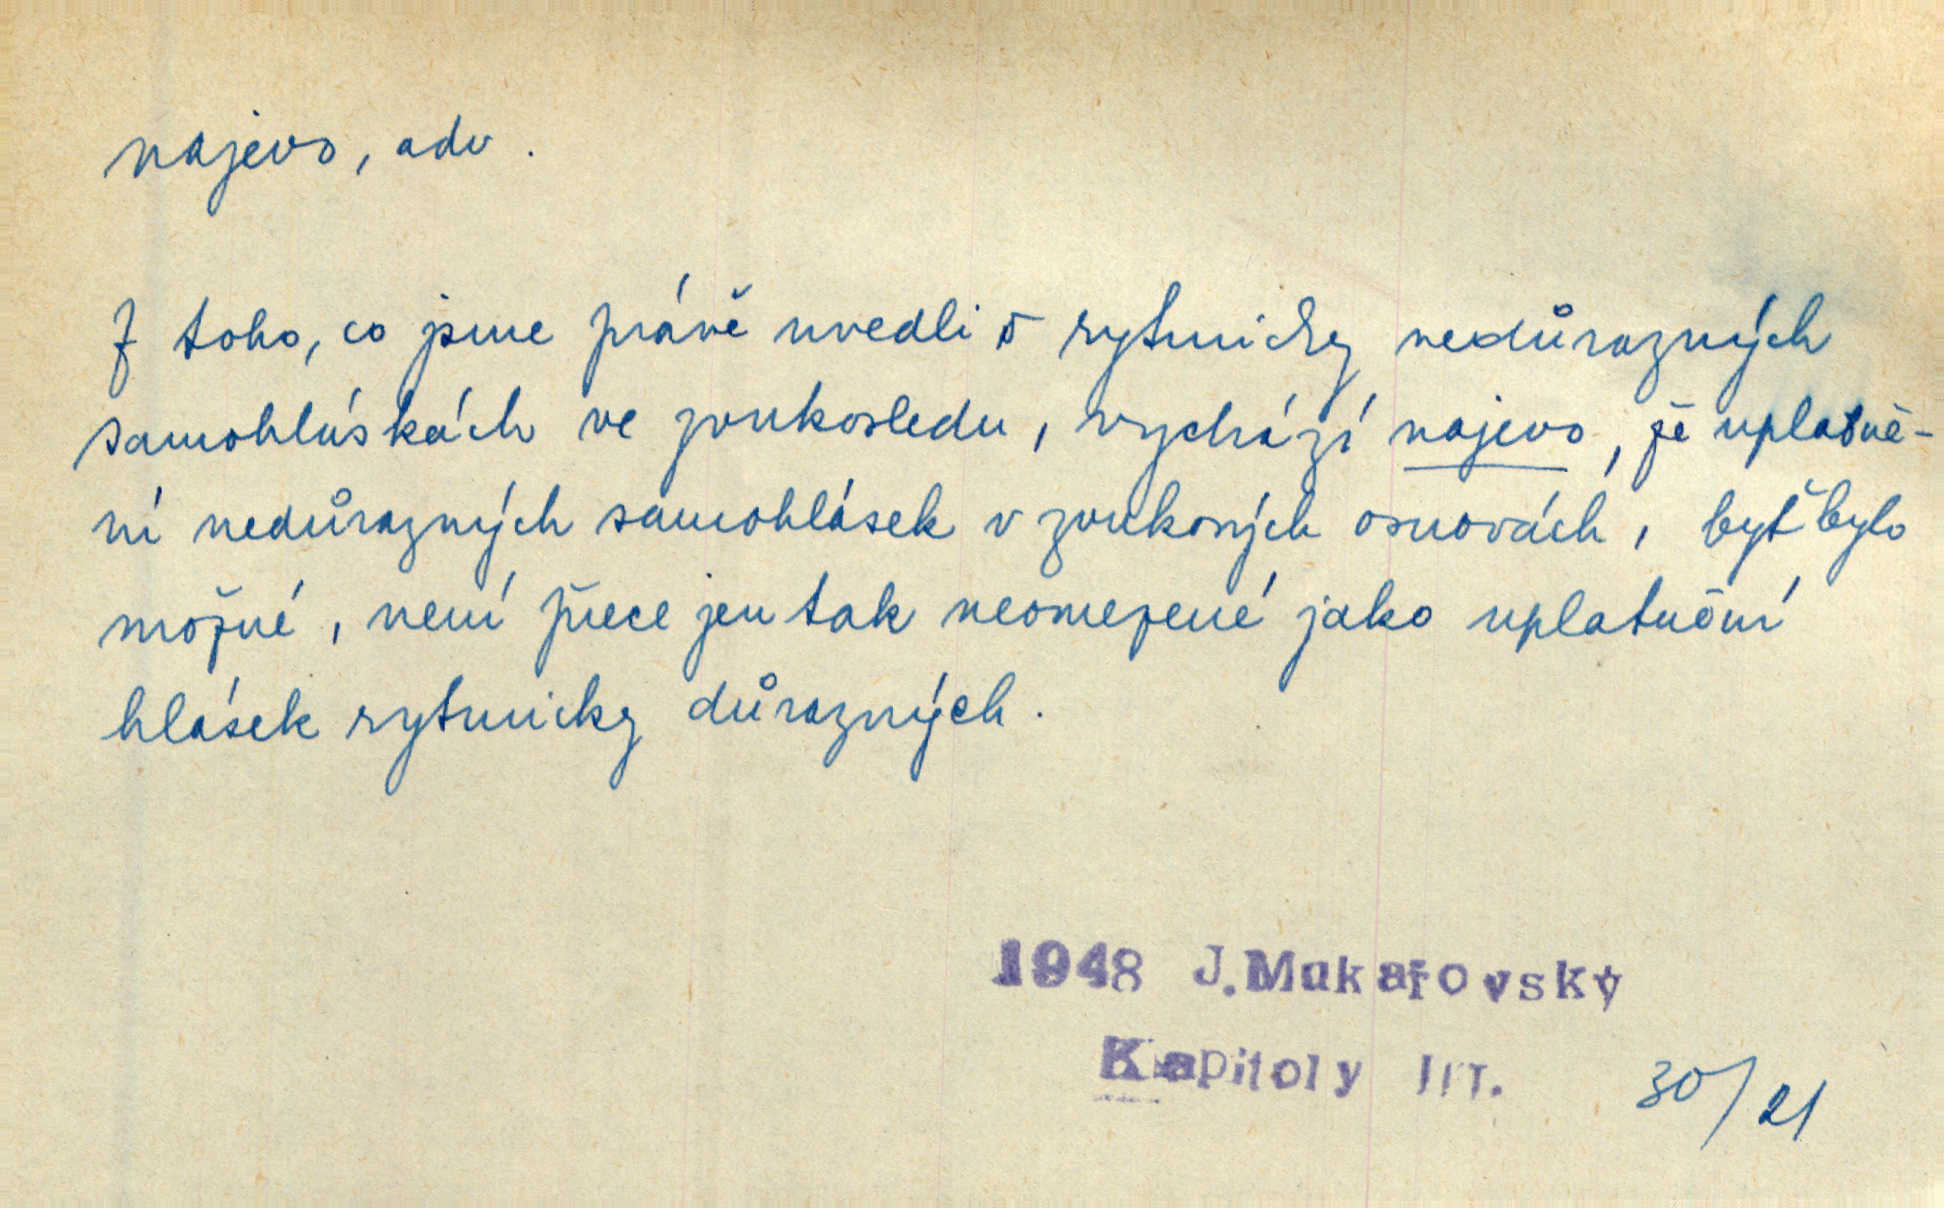 najevo, adv.
Z toho, co jsme právě uvedli o rytmicky nedůrazných
samohláskách ve zvukosledu, vychází najevo, že uplatně-
ní nedůrazných samohlásek v zvukových osnovách, byť bylo
možné, není přece jen tak neomezené jako uplatnění
hlásek rytmicky důrazných.
1948 J.Mukařovský
Kapitoly III.
30/21